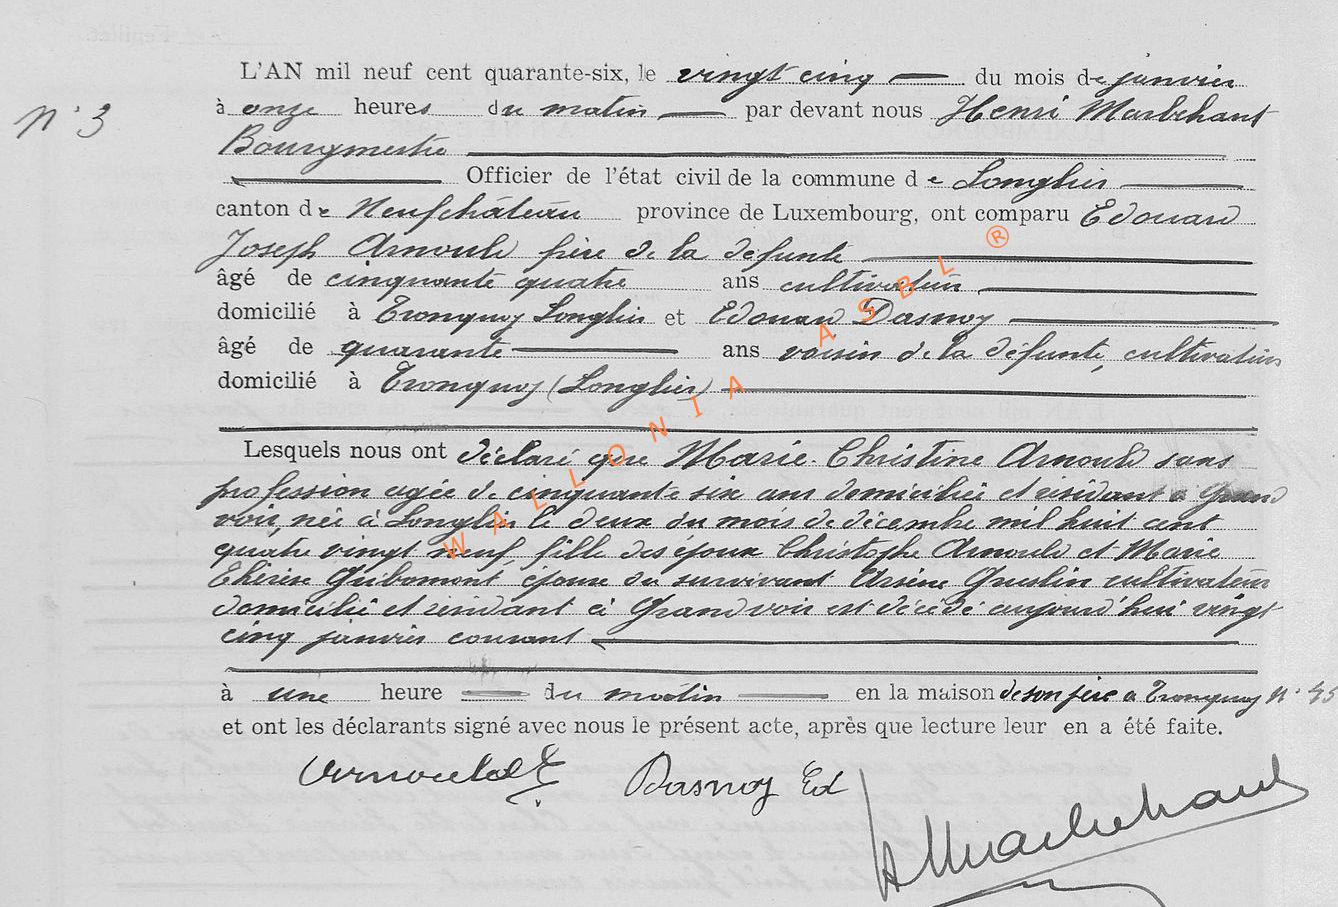 N° 3
L'AN mil neuf cent quarante-six, le vingt cinq du mois de janvier
à onze heures du matin par devant nous Henri Marbehant
Bourgmestre
Officier de l'état civil de la commune de Longlier
canton de Neufchâteau province de Luxembourg, ont comparu Edouard
Joseph Arnould frère de la défunte
âgé de cinquante quatre ans cultivateur
domicilié à Tronquoy Longlier et Edouard Dasnoy
âgé de quarante ans voisin de la défunte, cultivateur
domicilié à Tronquoy (Longlier)
Lesquels nous ont déclaré que Marie-Christine Arnould sans
profession agée de cinquante six ans domiciliée et résidant à Grand
voir, née à Longlier le deux du mois de décembre mil huit cent
quatre vingt neuf, fille des époux Christophe Arnould et Marie
Thérèse Guibomont, épouse du survivant Arsène Gueslin cultivateur
domicilié et résidant à Grandvoir est décédé aujourd'hui vingt
cinq janvier courant
à une heure du matin en la maison de son père à Tronquoy N° 45
et ont les déclarants signé avec nous le présent acte, après que lecture leur en a été faite.
Arnould E Dasnoy Ed
H Marbehant
WALLONIA ASBL ®